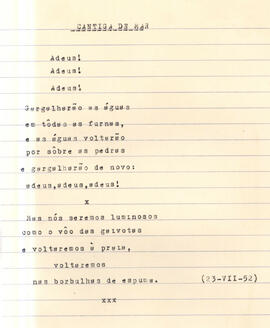 CANTIGA DE MAR
Adeus!
Adeus!
Adeus!
Gargalharão as águas
em tôdas as furnas,
e as águas voltarão
por sôbre as pedras
e gargalharão de novo:
adeus,adeus,adeus!
x
Mas nós seremos luminosos
como o vôo das gaivotas
e voltaremos à praia,
voltaremos
nas borbulhas de espuma. (23-VII-52)
xxx